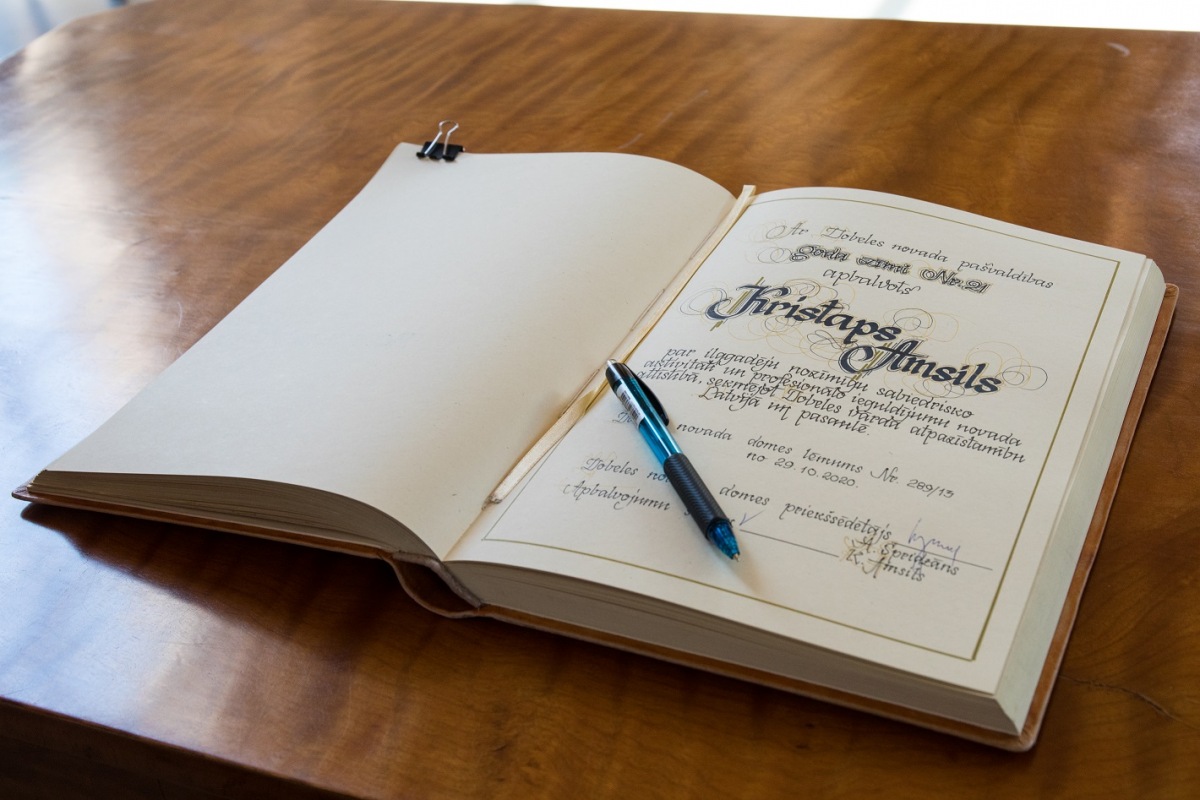 Ar Dobeles novada pašvaldības
goda zīmi Nr.21
apbalvots
Kristaps
Amsils
par ilggadēju nozīmīgu sabiedrisko
aktivitāti un profesionālo ieguldījumu novada
attīstībā, sekmējot Dobeles vārda atpazīstamību
Latvijā un pasaulē.
novada domes lēmums Nr. 289/13
no 29.10.2020.
Dobeles domes priekšsēdētājs
A. Spridzāns
Apbalvojumu
K. Amsils